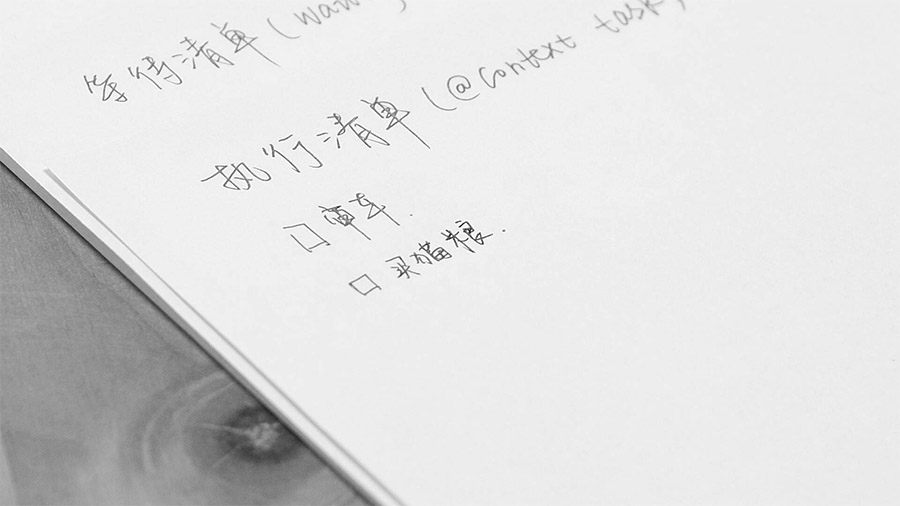 等待清单(
执行清单(@context task)
□ 审车.
□ 买猫粮.